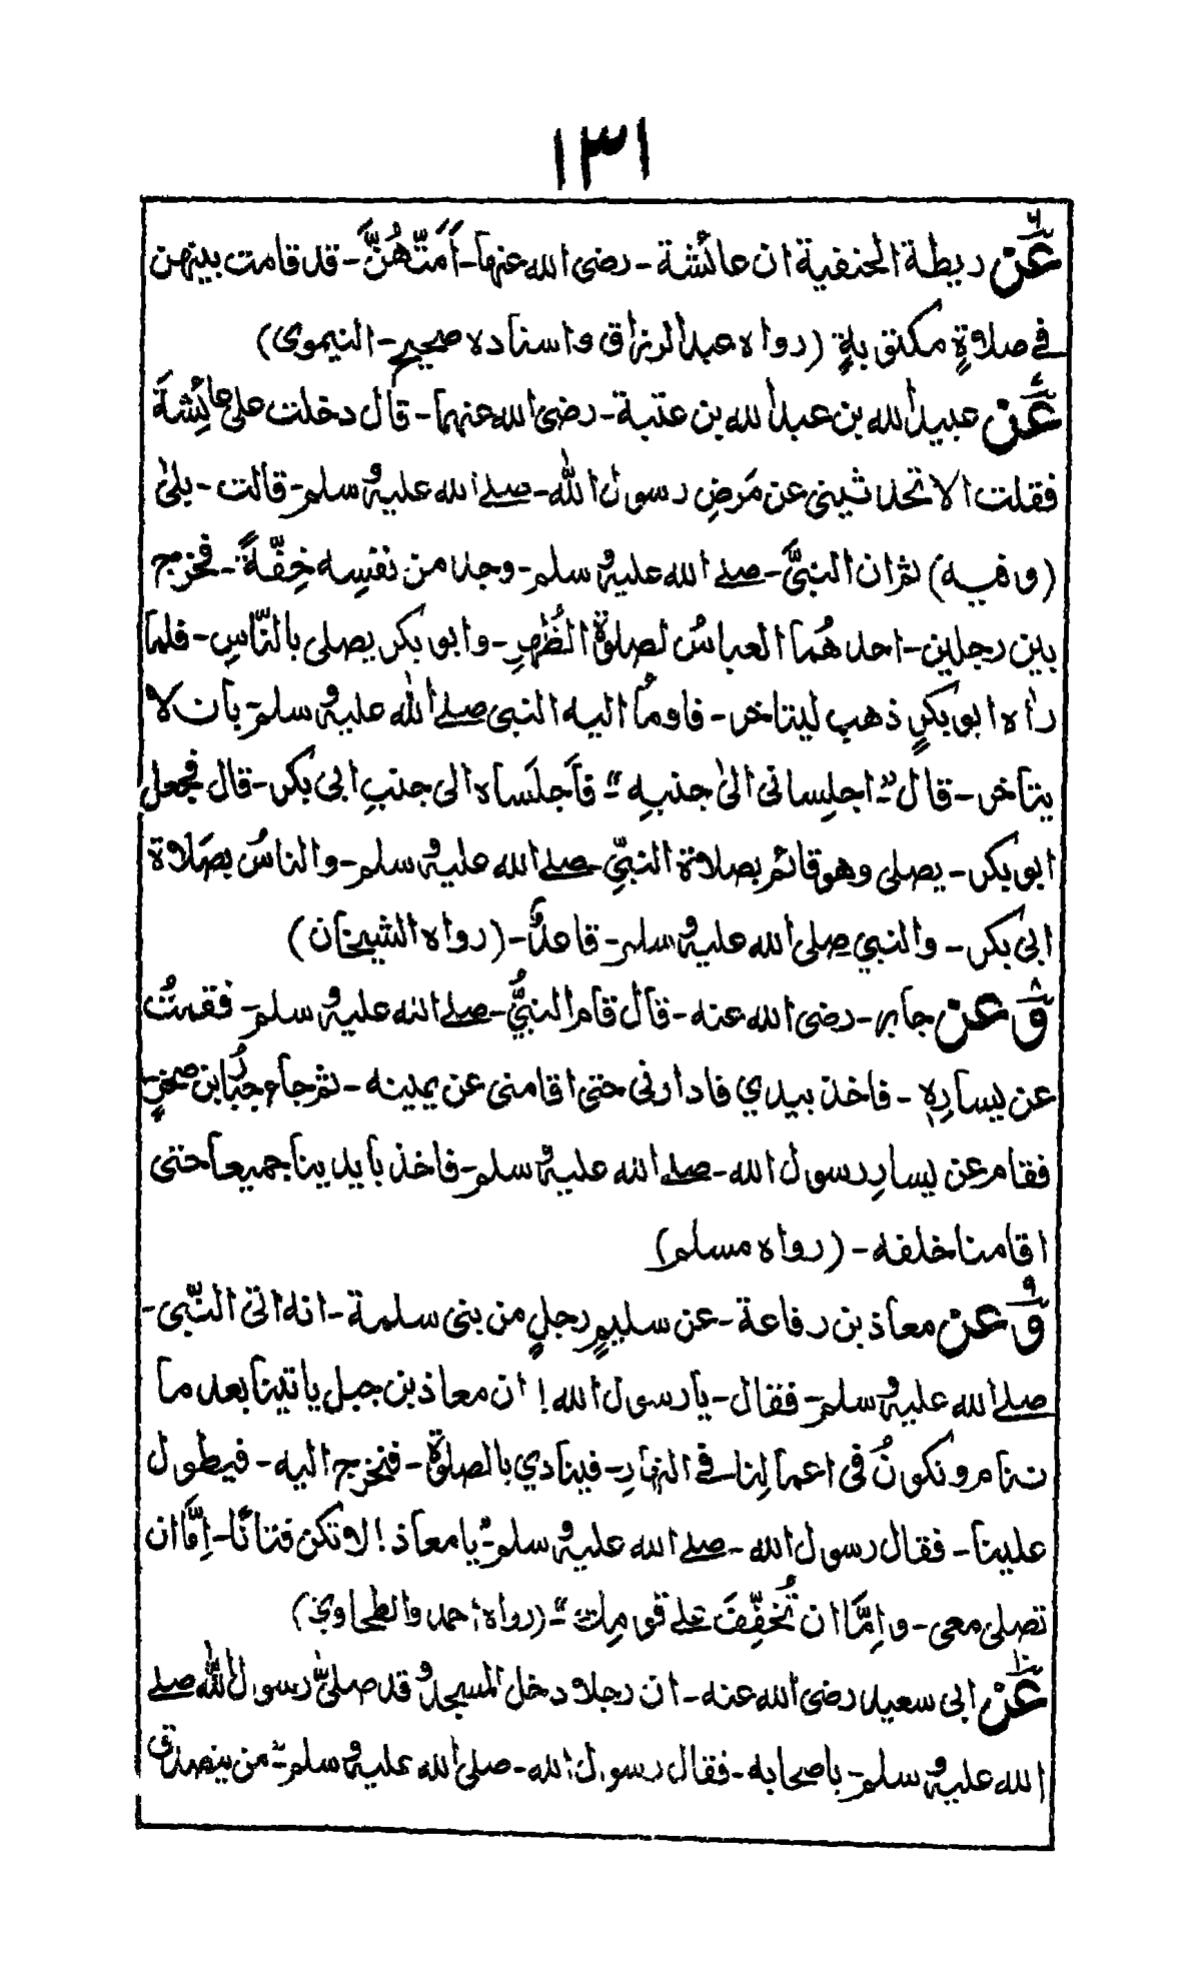 ١٣١
عَنْ ريطة الحنفية ان عائشة - رضى الله عنها - أَمَّتْهُنَّ - قد قامت بينهن
فى صلاةٍ مكتوبةٍ (رواه عبد الرزاق واسناده صحيح - النيموى)
عَنْ عبيد الله بن عبد الله بن عتبة - رضى الله عنهما - قال دخلت على عائِشةَ
فقلت الا تحدثينى عن مَرضِ رسول الله - صلى الله عليه وسلم - قالت - بلىٰ
(وفيه) ثم ان النبىَّ - صلى الله عليه وسلم - وجد من نفسِه خِفّةً - فخرج
بين رجلين - احدهُما العباسُ لصلوٰة الظُهرِ - وابو بكر يصلى بالنّاسِ - فلما
رأه ابو بكرٍ ذهب ليتاخر - فاومأ اليه النبى صلى الله عليه وسلم - بان لا
يتاخر - قال "اجلِسانى الىٰ جنبِه" - فاَجلَساه الى جنبِ ابى بكر - قال فجعل
ابو بكر - يصلى وهو قائم بصلاة النبىِّ صلى الله عليه وسلم - والناسُ بصَلاة
ابى بكر - والنبي صلى الله عليه وسلم - قاعدٌ - (رواه الشيخان)
وَ عن جابر - رضى الله عنه - قال قام النبيُّ - صلى الله عليه وسلم - فقمتُ
عن يسارِه - فاخذ بيدي فادارنى حتى اقامنى عن يمينه - ثم جاء جبّارُ ابن صخرٍ -
فقام عن يسارِ رسول الله - صلى الله عليه وسلم - فاخذ بايدينا جميعاً حتى
اقامنا خلفه - (رواه مسلم)
وَ عن معاذ بن رفاعة - عن سليمٍ رجلٍ من بنى سلمة - انه اتى النّبى -
صلى الله عليه وسلم - فقال - يا رسول الله! ان معاذ بن جبل ياتينا بعد ما
ننام ونكونُ فى اعمالِنا فى النهارِ - فينادي بالصلوٰة - فنخرج اليه - فيطول
علينا - فقال رسول الله - صلى الله عليه وسلم - "يا معاذ! لا تكن فتانًا - اِمّا ان
تصلى معى - واِمّا ان تُخفِّفَ على قومِك" - (رواه احمد والطحاوي)
عَنْ ابى سعيد رضى الله عنه - ان رجلا دخل المسجد وقد صلىّ رسول الله صلى
الله عليه وسلم - باصحابه - فقال رسول الله - صلى الله عليه وسلم - "من يتصدق